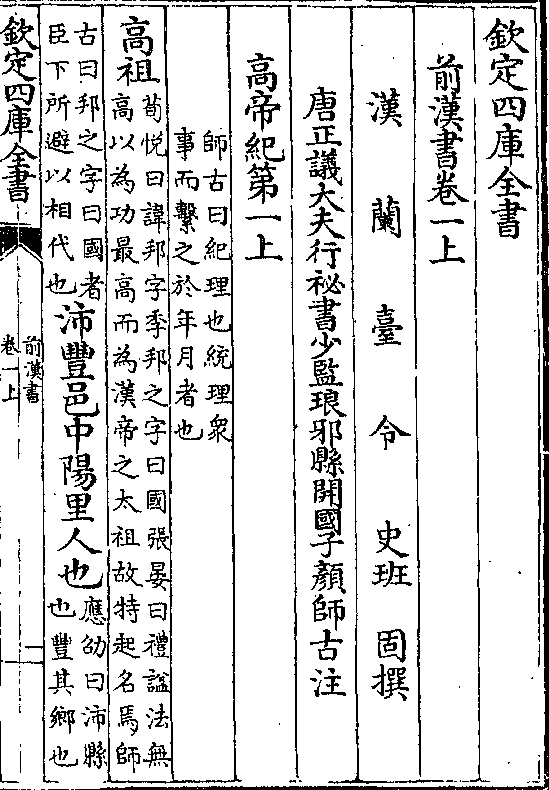 欽定四庫全書
前漢書卷一上
漢蘭臺令史班固撰
唐正議大夫行祕書少監琅邪縣開國子顏師古注
高帝紀第一上
師古曰紀理也統理衆
事而繫之於年月者也
高祖
荀悅曰諱邦字季邦之字曰國張晏曰禮諡法無
高以為功最高而為漢帝之太祖故特起名焉師
古曰邦之字曰國者
臣下所避以相代也
沛豐邑中陽里人也
應劭曰沛縣
也豐其鄉也
欽定四庫全書
前漢書
卷一上
一